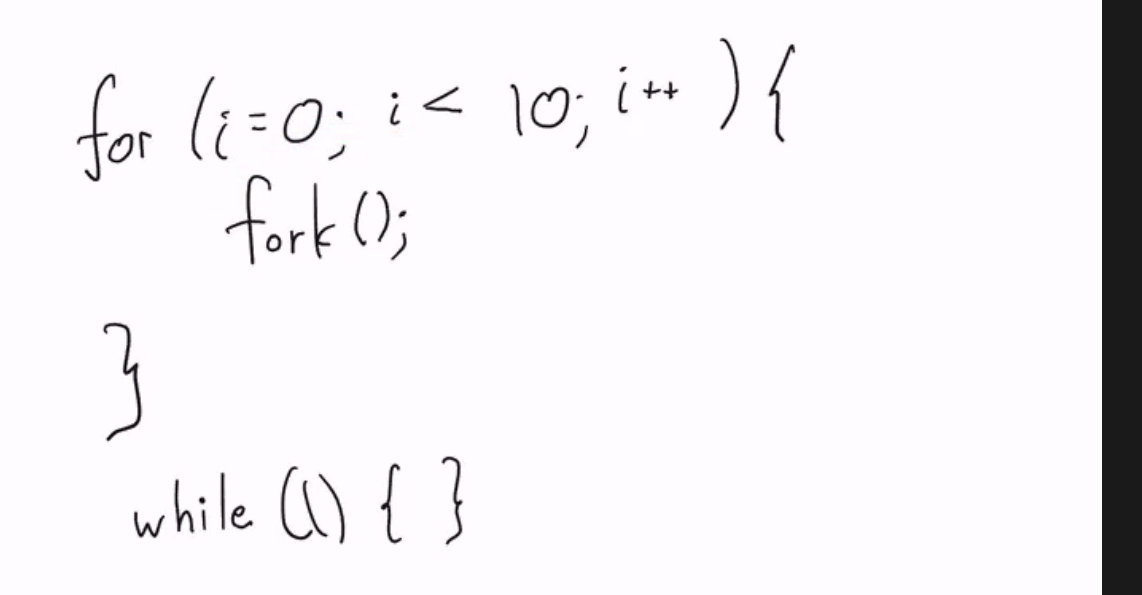 for (i=0; i < 10; i++ ){
fork();
}
while (1) { }